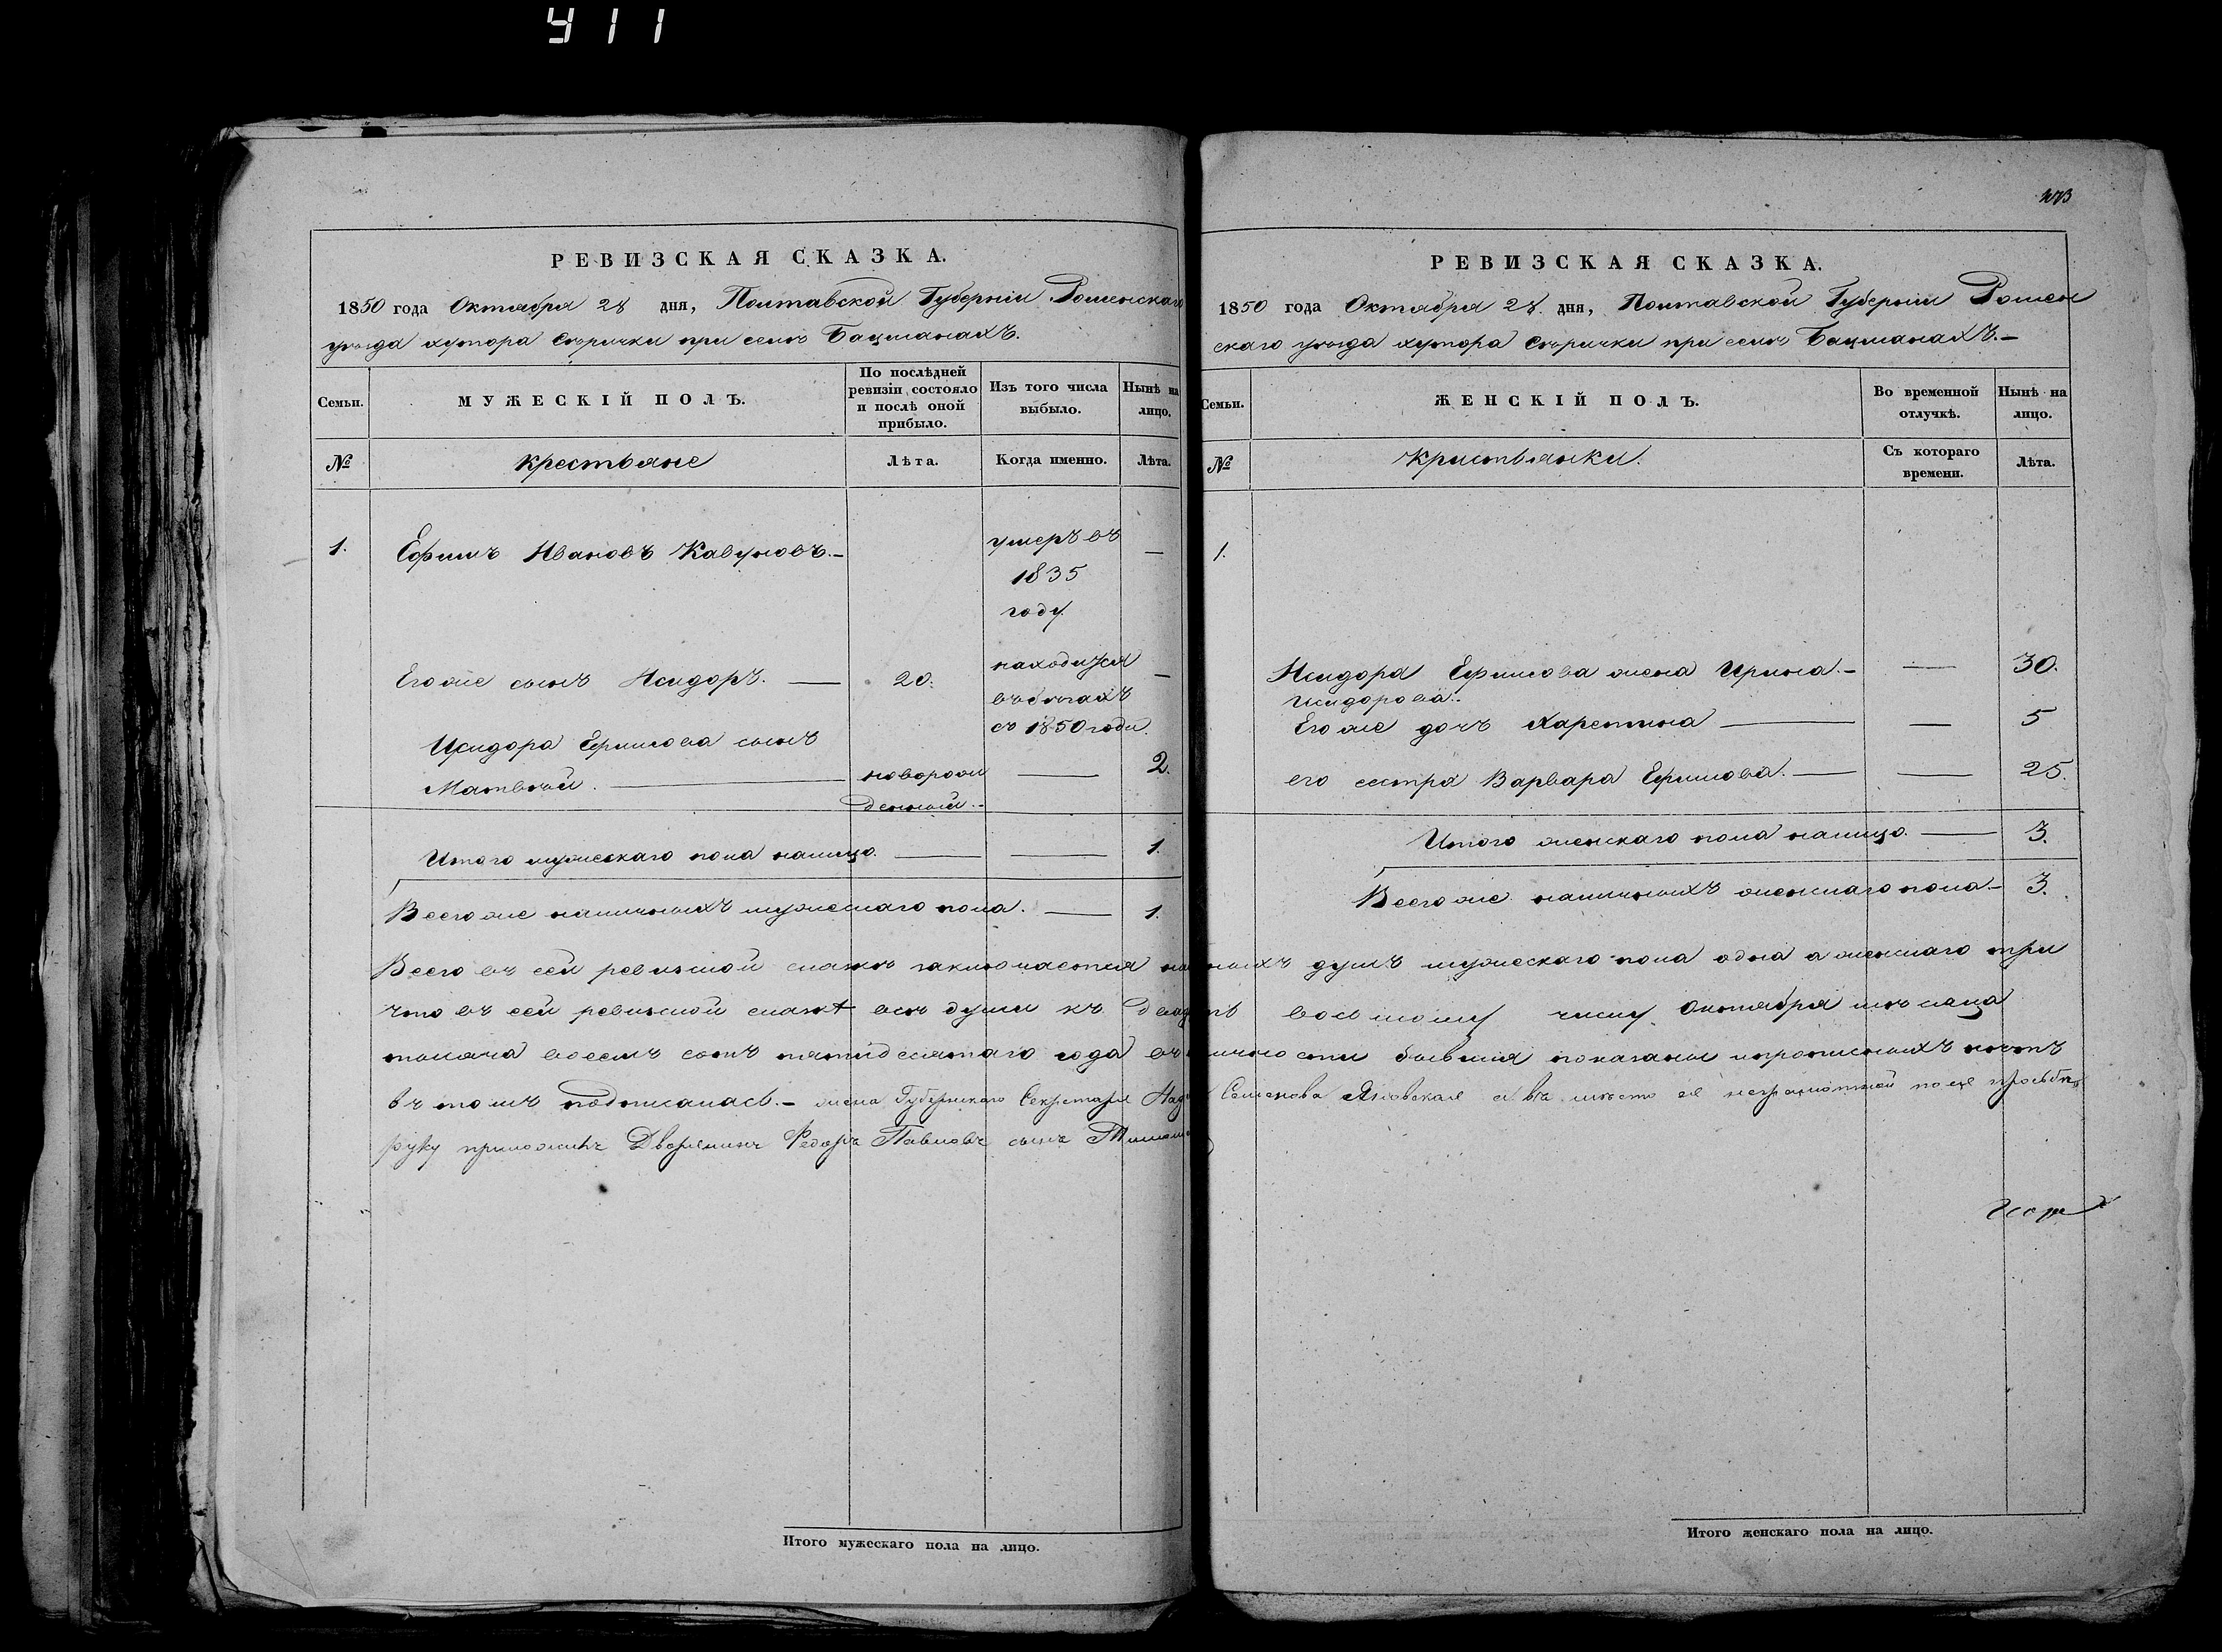 411
РЕВИЗСКАЯ СКАЗКА.
1850 года Октября 28 дня, Полтавской Губерніи Роменскаго
уѣзда хутора Сѣрички при селѣ Бацманахъ.
Семьи.
МУЖЕСКІЙ ПОЛЪ.
По послѣдней ревизіи состояло и послѣ оной прибыло.
Изъ того числа выбыло.
Нынѣ на лицо.
№
крестьяне
Лѣта.
Когда именно.
Лѣта.
1. Ефимъ Ивановъ Кавуновъ.— умеръ въ —
1835
году
Егоже сынъ Исидоръ. — 20. находится —
въ бѣгахъ
съ 1850 года.
Исидора Ефимова сынъ
Матвѣй. — новорож — 2.
денный.-
Итого мужескаго пола налицо. — — 1.
Всего же наличныхъ мужескаго пола. — 1.
273
РЕВИЗСКАЯ СКАЗКА.
1850 года Октября 28. дня, Полтавской Губерніи Ромен
скаго уѣзда хутора Сѣрички при селѣ Бацманахъ.—
Семьи.
ЖЕНСКІЙ ПОЛЪ.
Во временной отлучкѣ.
Нынѣ на лицо.
№
Кристьянки.
Съ котораго времени.
Лѣта.
1.
Исидора Ефимова жена Ирина.— — 30.
Исидорова.
Его же дочь Харетина — — 5
его сестра Варвара Ефимова. — — 25.
Итого женскаго пола налицо. — 3.
Всего же наличныхъ женскаго пола.— 3.
Всего въ сей ревизской сказкѣ заключается наличныхъ душъ мужескаго пола одна а женскаго три
что въ сей ревизской сказкѣ всѣ души къ двадцать восьмому числу Октября мѣсяца
тысяча восемъ сотъ пятидесятаго года въ наличности бывшія показаны и прописныхъ нѣтъ
въ томъ подписалась.— жена Губернскаго Секретаря Семенова а вмѣсто ея неграмотной по ея прозьбѣ
руку приложилъ Дворянинъ Федоръ Павловъ сынъ
Итого мужескаго пола на лицо.
Итого женскаго пола на лицо.